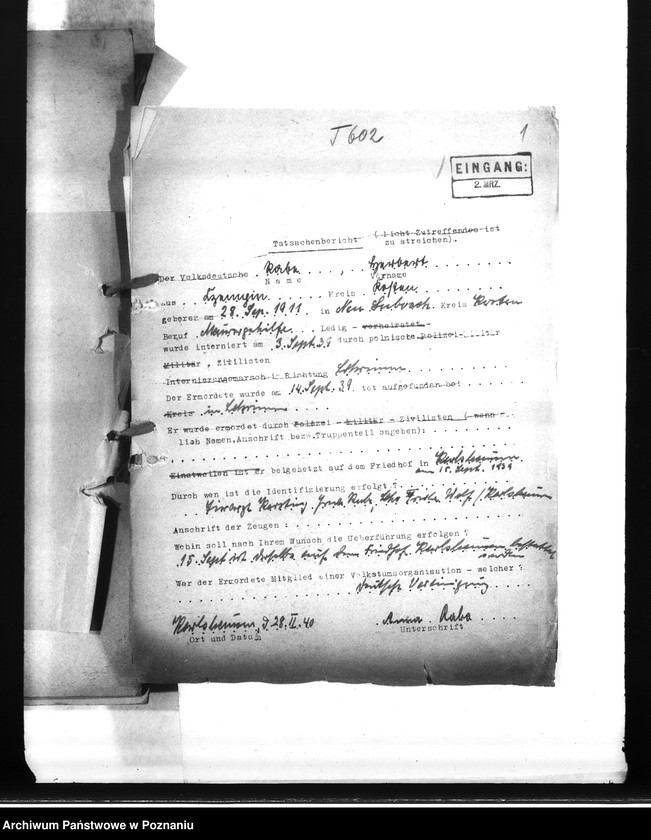 T 602
1
EINGANG:
2. MRZ.
Tatsachenbericht ( licht Zutreffendes ist
zu streichen).
Der Volksdeutsche . Rabe . . . . , . Herbert . . . . . . . .
N a m e Vorname
aus . . . . . . Kreis . Kosten . . . . . . . . .
geboren am 28. Sep. 1911. in Neu Kreis Kosten
Beruf . . . . Ledig - verheiratet
wurde interniert am 3. Sept. 39 durch polnische Polizei-Militär
Militär , Zivilisten
Internierungsmarsch in Richtung
Der Ermordete wurde am 14. Sept. 39. tot aufgefunden bei . . . . . .
Kreis . in . . . .
Er wurde ermordet durch Polizei - Militär - Zivilisten ( wenn
lich Namen,Anschrift bezw.Truppenteil angeben):
Einstweilen ist er beigesetzt auf dem Friedhof in
am 15. Sept. 1939
Durch wen ist die Identifizierung erfolgt ?
Anschrift der Zeugen :
Wohin soll nach Ihrem Wunsch die Ueberführung erfolgen ?
15. Sept ist auf dem Friedhof
worden
War der Ermordete Mitglied einer Volkstumsorganisation - welcher ?
Deutsche Vereinigung
d 28. II. 40 Anna . Rabe . . . .
Ort und Datum Unterschrift
Archiwum Państwowe w Poznaniu